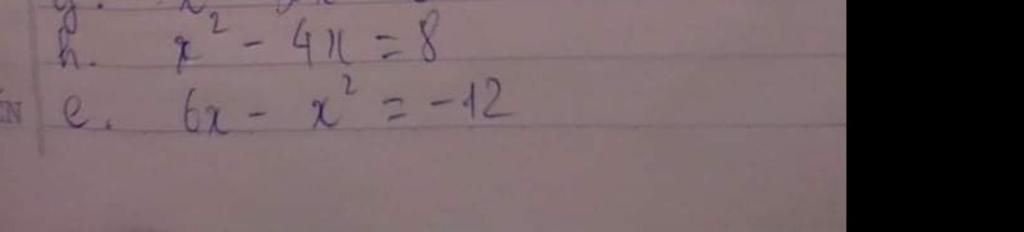 h. x² - 4x = 8
e. 6x - x² = -12